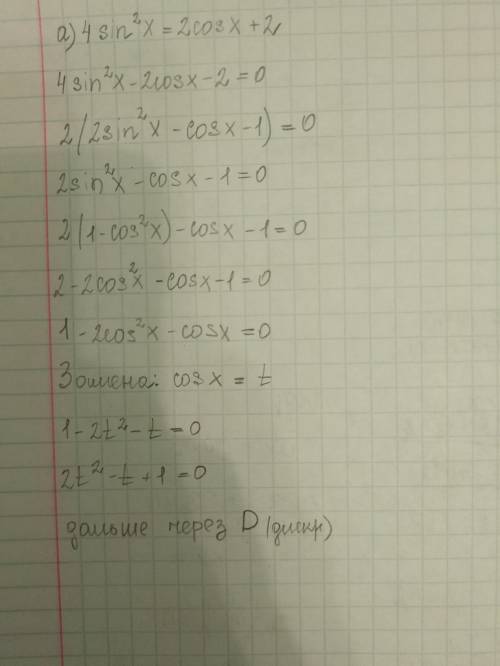 a) 4 sin²x = 2cosx + 2
4sin²x - 2cosx - 2 = 0
2(2sin²x - cosx - 1) = 0
2sin²x - cosx - 1 = 0
2(1 - cos²x) - cosx - 1 = 0
2 - 2cos²x - cosx - 1 = 0
1 - 2cos²x - cosx = 0
Замена: cosx = t
1 - 2t² - t = 0
2t² - t + 1 = 0
дальше через D (дискр)